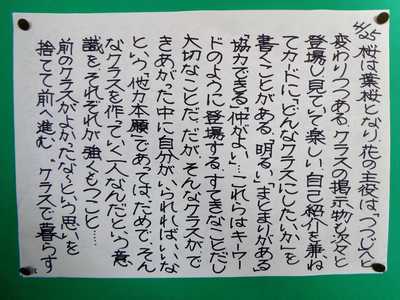 4/25 桜は葉桜となり、花の主役は「つつじ」へと
変わりつつある。クラスの掲示物も次々と
登場し、見ていて楽しい。自己紹介を兼ね
てカードに「どんなクラスにしたいか」を
書くことがある。「明るい」「まとまりがある」
「協力できる」「仲がよい」…これらはキーワー
ドのように登場する。すてきなことだし
大切なことだ。だが、そんなクラスがで
きあがった中に自分がいられればいいな
という「他力本願」であってはだめで、そん
なクラスを作っていく一人なんだという意
識をそれぞれが強くもつこと…。
前のクラスがよかったな、という思いを
捨てて前へ進む。クラスで暮らす